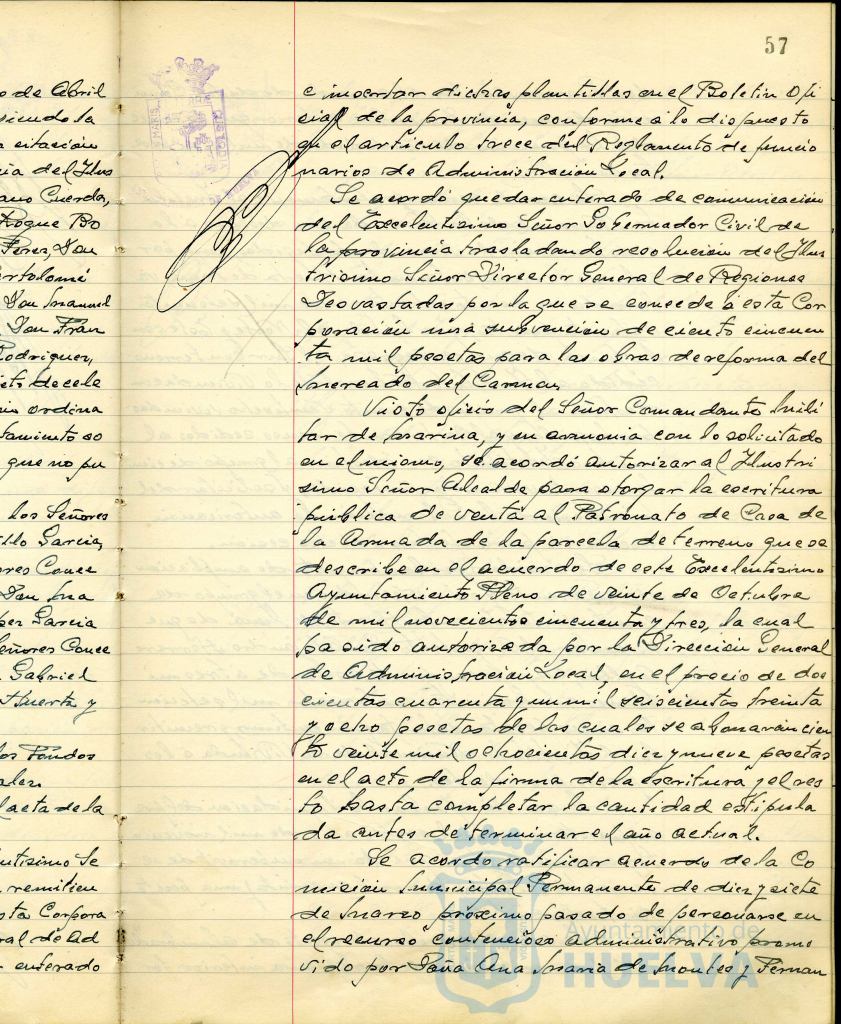 57
o de Abril
siendo la
a citación
ia del Ilus
ano Cuerda,
Roque Bo
Perez, Don
artolomé
Don Manuel
Don Fran
Rodriguez,
de cele
ordina
tamiento
que no pu
los Señores
llo Garcia,
ores Conce
Don Ma
per Garcia
eñores Conce
Gabriel
Huerta y
los Fondos
ales.
l acta de la
ntisimo Se
remitien
sta Corpora
ral de Ad
enterado
e insertar dichas plantillas en el Boletin Ofi
cial de la provincia, conforme a lo dispuesto
en el articulo trece del Reglamento de funcio
narios de Administración Local.
Se acordó quedar enterado de comunicación
del Excelentisimo Señor Gobernador Civil de
la provincia trasladando resolución del Ilus
trisimo Señor Director General de Regiones
Devastadas por la que se concede a esta Cor
poración una subvención de ciento cincuen
ta mil pesetas para las obras de reforma del
Mercado del Carmen.
Visto oficio del Señor Comandante Mili
tar de Marina, y en armonia con lo solicitado
en el mismo, se acordó autorizar al Ilustri
simo Señor Alcalde para otorgar la escritura
pública de venta al Patronato de Casa de
la Armada de la parcela de terreno que se
describe en el acuerdo de este Excelentisimo
Ayuntamiento Pleno de veinte de Octubre
de mil novecientos cincuenta y tres, la cual
ha sido autorizada por la Dirección General
de Administración Local, en el precio de dos
cientas cuarenta y un mil seiscientas treinta
y ocho pesetas de las cuales se abonarán cien
to veinte mil ochocientas diez y nueve pesetas
en el acto de la firma de la escritura y el res
to hasta completar la cantidad estipula
da antes de terminar el año actual.
Se acordo ratificar acuerdo de la Co
misión Municipal Permanente de diez y siete
de Marzo próximo pasado de personarse en
el recurso contencioso administrativo promo
vido por Doña Ana Maria de Montes y Fernan
Ayuntamiento de
HUELVA